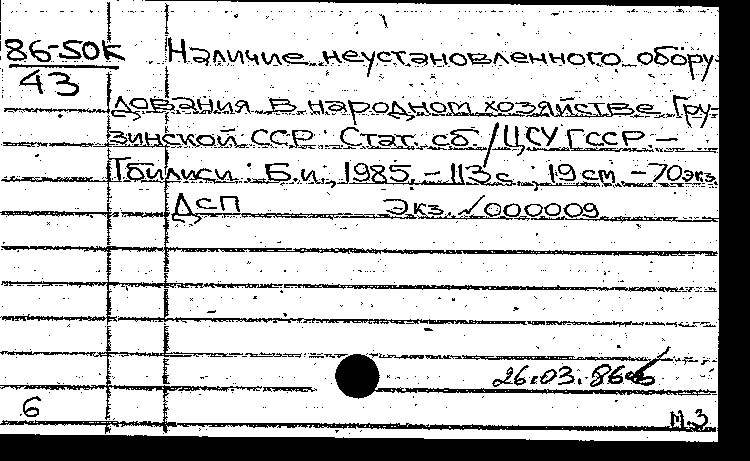 86-50к Наличие неустановленного обору-
43
дования в народном хозяйстве Гру-
зинской ССР: Стат. сб. / ЦСУ ГССР. —
Тбилиси: Б.и., 1985. - 113 с.; 19 cm. - 70 экз.
ДСП Экз. √000009
26.03.86
6
М.З